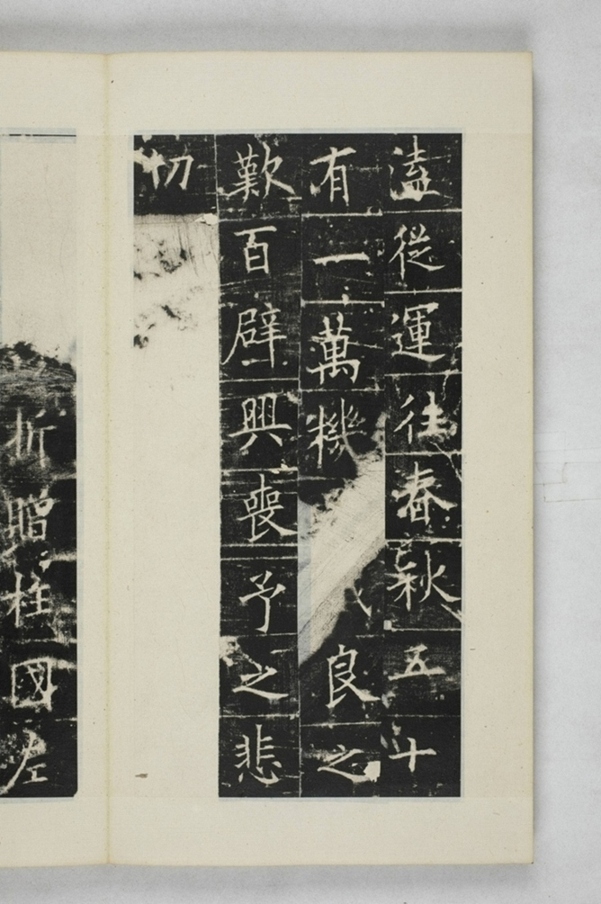 溘從運往春秋五十
有一萬機良之
歎百辟興喪予之悲
切
折贈柱國左